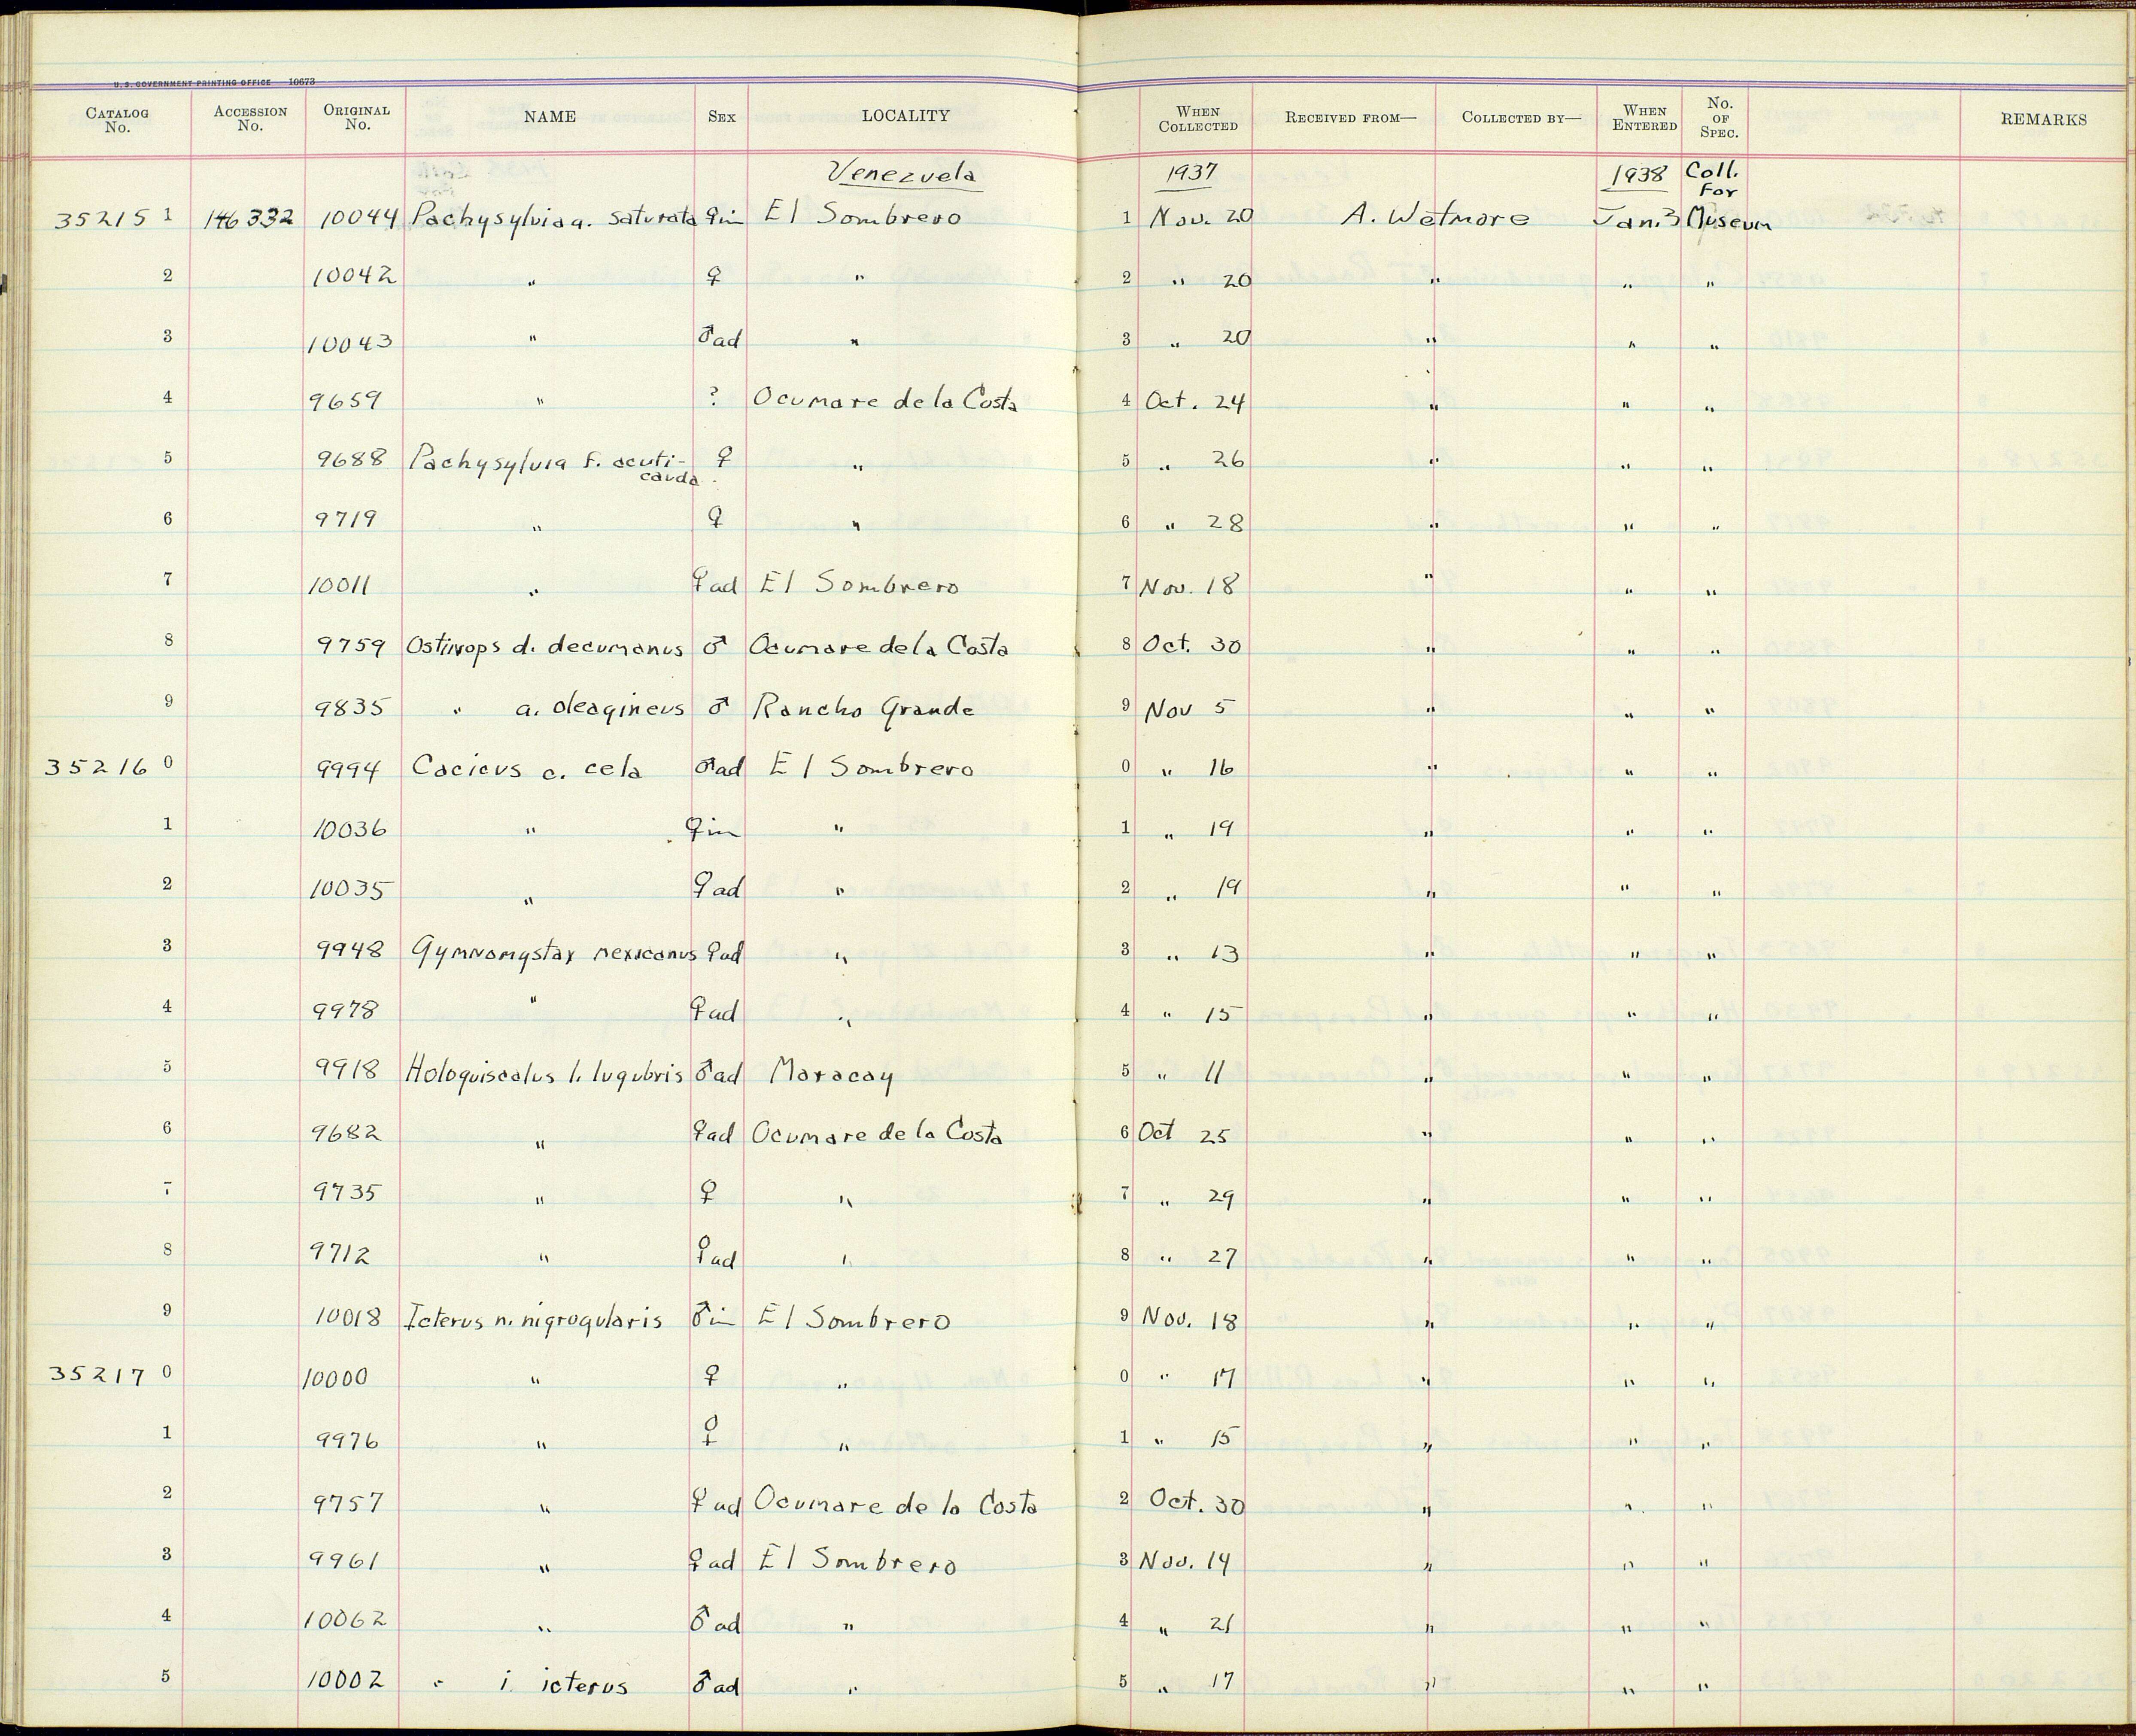 U.S. GOVERNMENT PRINTING OFFICE 10673
CATALOG No. ACCESSION No. ORIGINAL No. NAME SEX LOCALITY WHEN COLLECTED RECEIVED FROM— COLLECTED BY— WHEN ENTERED No. OF SPEC. REMARKS
Venezuela 1937 1938 Coll. For
35215 1 146332 10044 Pachysylvia a. saturata ♀im El Sombrero 1 Nov. 20 A. Wetmore Jan. 3 Museum
2 10042 " ♀ " 2 " 20 " " "
3 10043 " ♂ad " 3 " 20 " " "
4 9659 " ? Ocumare de la Costa 4 Oct. 24 " " "
5 9688 Pachysylvia f. acuti-cauda ♀ " 5 " 26 " " "
6 9719 " ♀ " 6 " 28 " " "
7 10011 " ♀ad El Sombrero 7 Nov. 18 " " "
8 9759 Ostinops d. decumanus ♂ Ocumare de la Costa 8 Oct. 30 " " "
9 9835 " a. oleagineus ♂ Rancho Grande 9 Nov 5 " " "
35216 0 9994 Cacicus c. cela ♂ad El Sombrero 0 " 16 " " "
1 10036 " ♀im " 1 " 19 " " "
2 10035 " ♀ad " 2 " 19 " " "
3 9948 Gymnomystax mexicanus ♀ad " 3 " 13 " " "
4 9978 " ♀ad " 4 " 15 " " "
5 9918 Holoquiscalus l. lugubris ♂ad Maracay 5 " 11 " " "
6 9682 " ♀ad Ocumare de la Costa 6 Oct 25 " " "
7 9735 " ♀ " 7 " 29 " " "
8 9712 " ♀ad " 8 " 27 " " "
9 10018 Icterus n. nigrogularis ♂im El Sombrero 9 Nov. 18 " " "
35217 0 10000 " ♀ " 0 " 17 " " "
1 9976 " ♀ " 1 " 15 " " "
2 9757 " ♀ad Ocumare de la Costa 2 Oct. 30 " " "
3 9961 " ♀ad El Sombrero 3 Nov. 14 " " "
4 10062 " ♂ad " 4 " 21 " " "
5 10002 " i. icterus ♂ad " 5 " 17 " " "